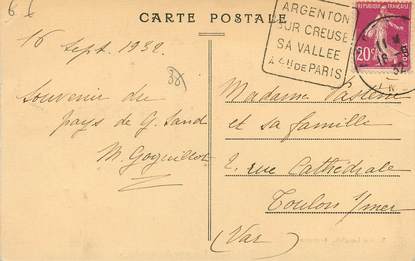 6 6
CARTE POSTALE
ARGENTON
SUR CREUSE
SA VALLEE
A 4H DE PARIS
RF
20c
16 Sept. 1932
38
Souvenir du
pays de G. Sand
Madame
et sa famille
2, rue Cathédrale
Toulon s/mer
(Var)